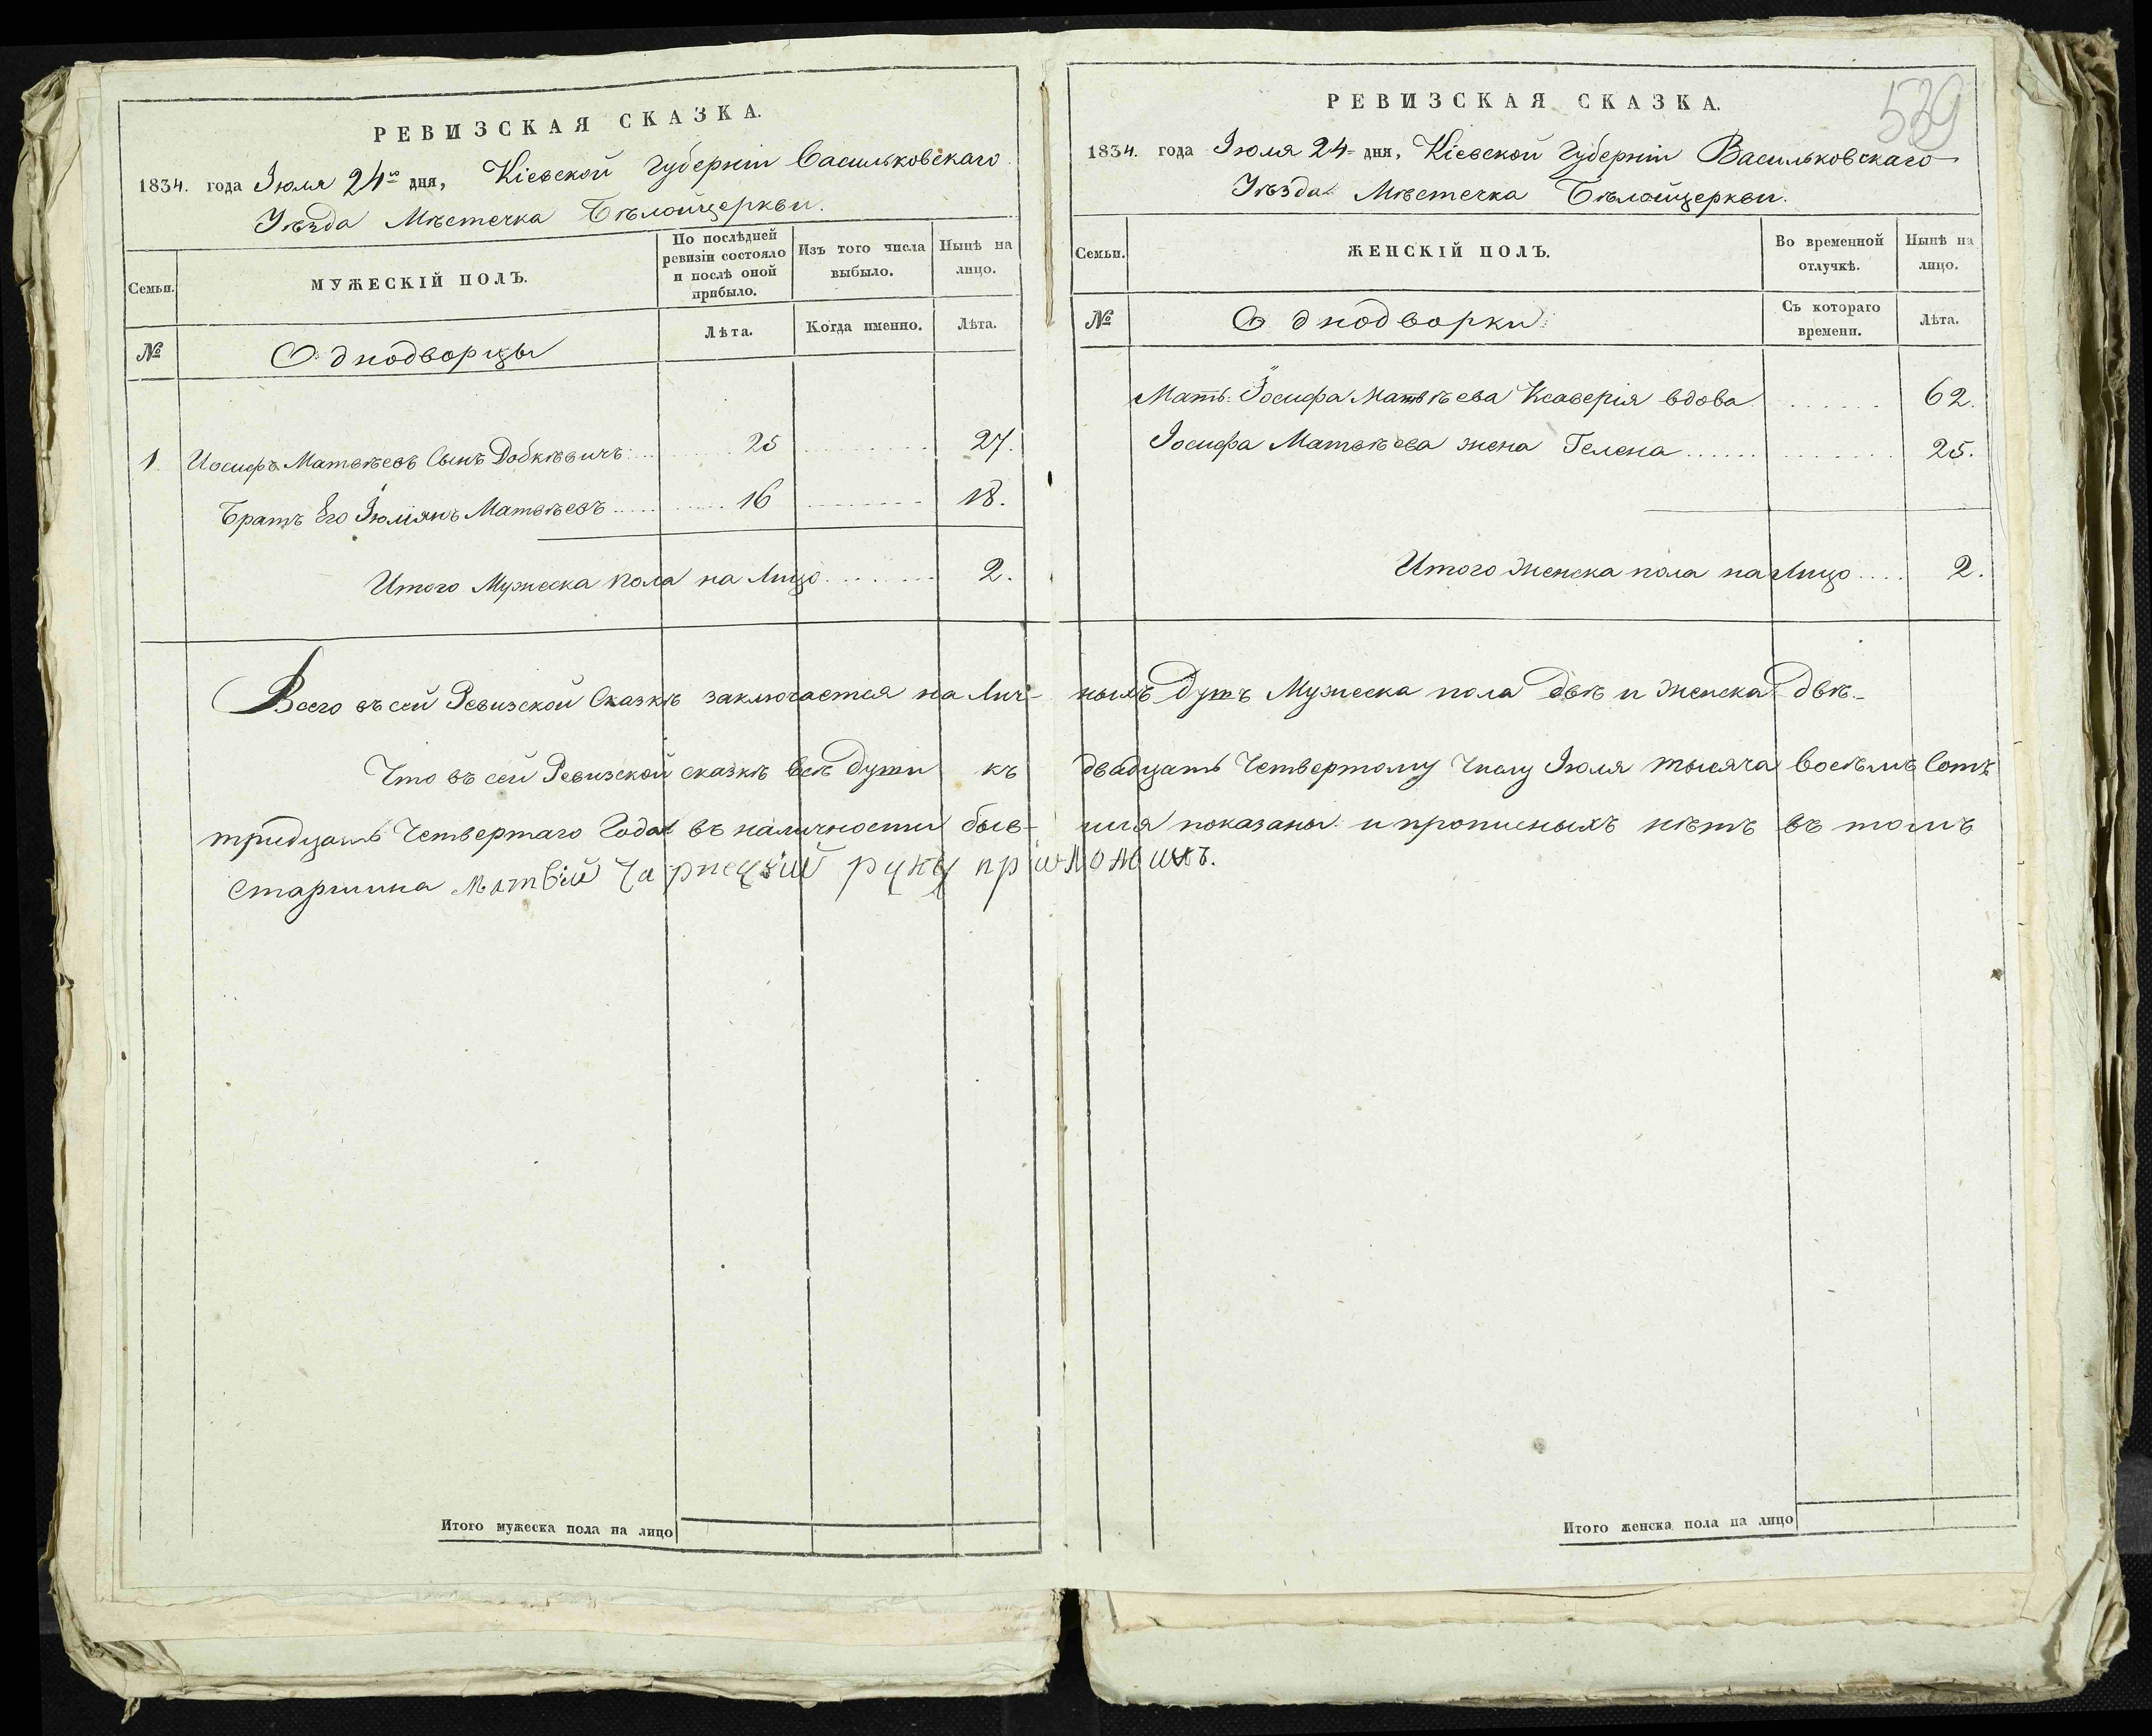 РЕВИЗСКАЯ СКАЗКА.
1834. года Іюля 24го дня, Кіевской Губерніи Васильковскаго
Уѣзда Мѣстечка Бѣлойцеркви.
Семьи.
МУЖЕСКІЙ ПОЛЪ.
По послѣдней
ревизіи состояло
и послѣ оной
прибыло.
Изъ того числа
выбыло.
Нынѣ на
лицо.
№
Однодворцы
Лѣта.
Когда именно.
Лѣта.
1 Иосифъ Матвѣевъ Сынъ Добкѣвичъ 25 27.
Братъ Его Іюліянъ Матвѣевъ 16 18.
Итого Мужеска пола на Лицо 2.
Итого мужеска пола на лицо
539
РЕВИЗСКАЯ СКАЗКА.
1834. года Іюля 24 дня, Кіевской Губерніи Васильковскаго
Уѣзда Мѣстечка Бѣлойцеркви.
Семьи.
ЖЕНСКІЙ ПОЛЪ.
Во временной
отлучкѣ.
Нынѣ на
лицо.
№
Однодворки
Съ котораго
времени.
Лѣта.
Мать Іосифа Матвѣева Ксаверія вдова 62.
Іосифа Матвѣева жена Гелена 25.
Итого Женска пола на Лицо 2.
Всего въ сей Ревизской Сказкѣ заключается на Лич- ныхъ Душъ Мужеска пола двѣ и Женска двѣ.
Что въ сей Ревизской сказкѣ всѣ Души къ двадцать Четвертому Числу Іюля тысяча восѣмъ Сотъ
тридцать Четвертаго Года въ наличности быв- шія показаны и прописныхъ нѣтъ въ томъ
Старшина Матвій Чарнецкій руку приложилъ.
Итого женска пола на лицо